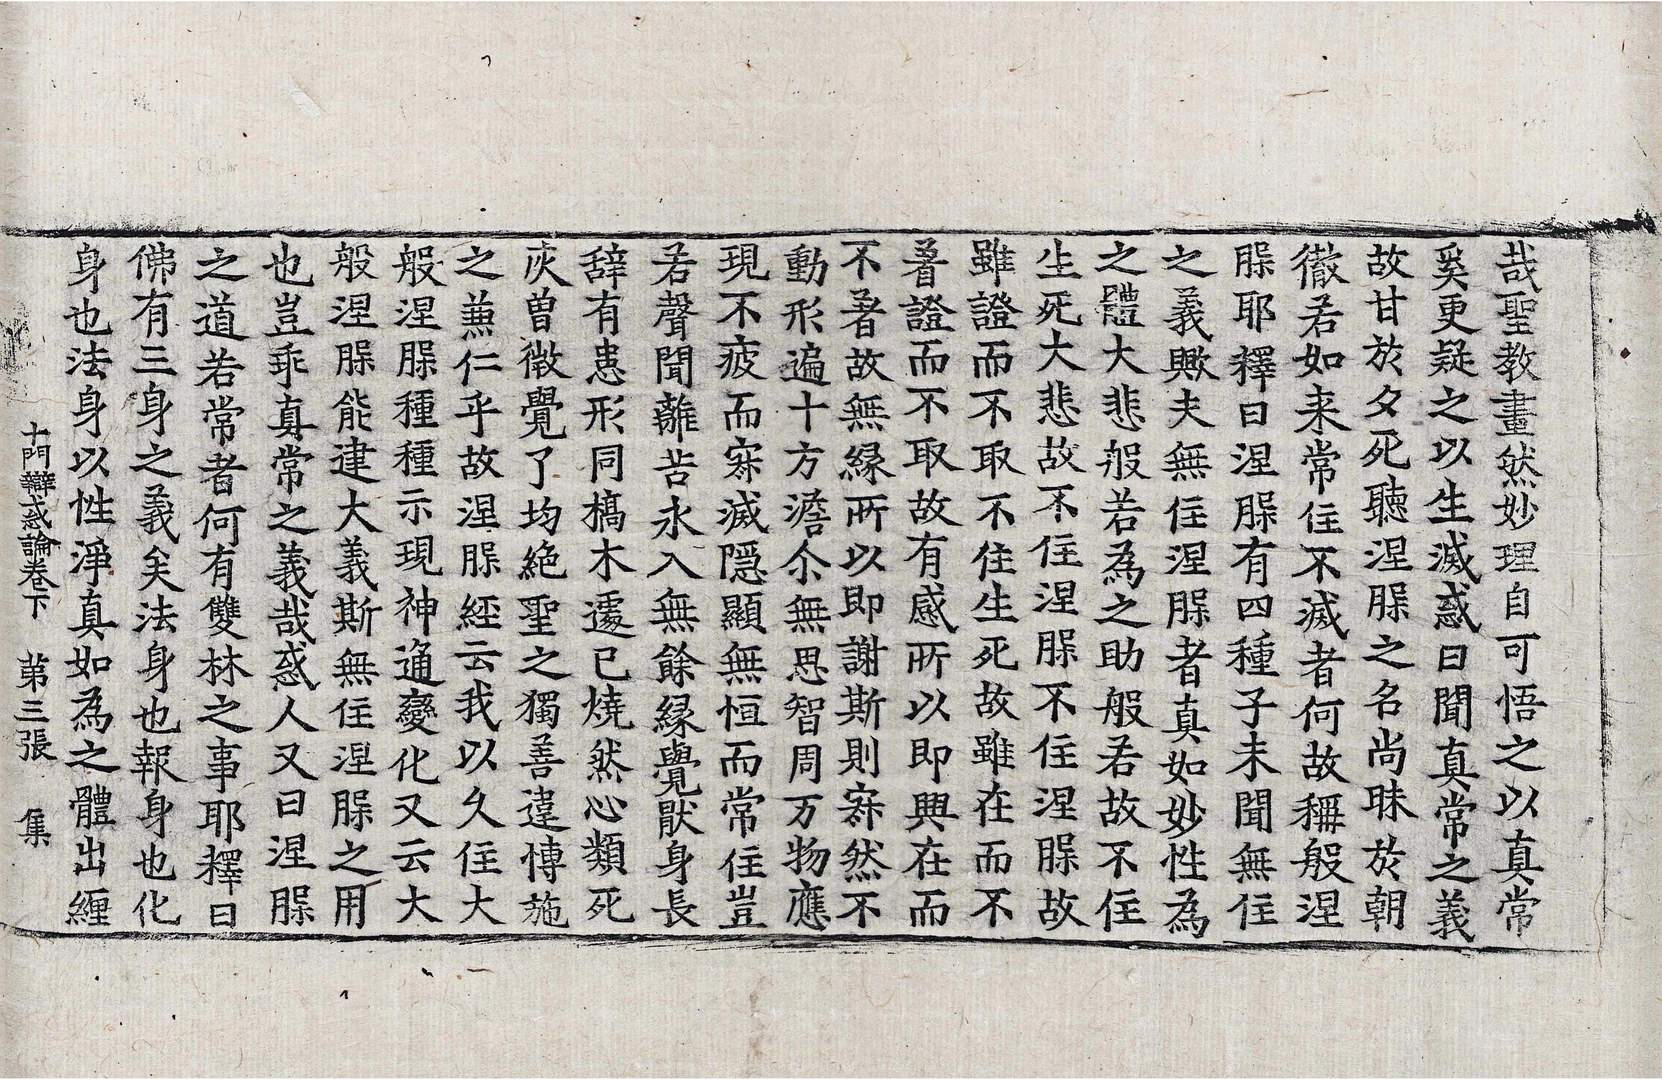 哉聖教晝然妙理自可悟之以真常
奚更疑之以生滅惑曰聞真常之義
故甘於夕死聽涅槃之名尚昧於朝
徹若如来常住不滅者何故稱般涅
槃耶釋曰涅槃有四種子未聞無住
之義歟夫無住涅槃者真如妙性為
之體大悲般若為之助般若故不住
生死大悲故不住涅槃不住涅槃故
雖證而不取不住生死故雖在而不
著證而不取故有感所以即興在而
不著故無緣所以即謝斯則寂然不
動形遍十方澹尒無思智周万物應
現不疲而寂滅隱顯無恒而常住豈
若聲聞離苦永入無餘緣覺猒身長
辭有患形同槁木遽已燒然心類死
灰曾微覺了均絕聖之獨善違博施
之兼仁乎故涅槃經云我以久住大
般涅槃種種示現神通變化又云大
般涅槃能建大義斯無住涅槃之用
也豈乖真常之義哉惑人又曰涅槃
之道若常者何有雙林之事耶釋曰
佛有三身之義矣法身也報身也化
身也法身以性淨真如為之體出纏
十門辯惑論卷下 第三張 集